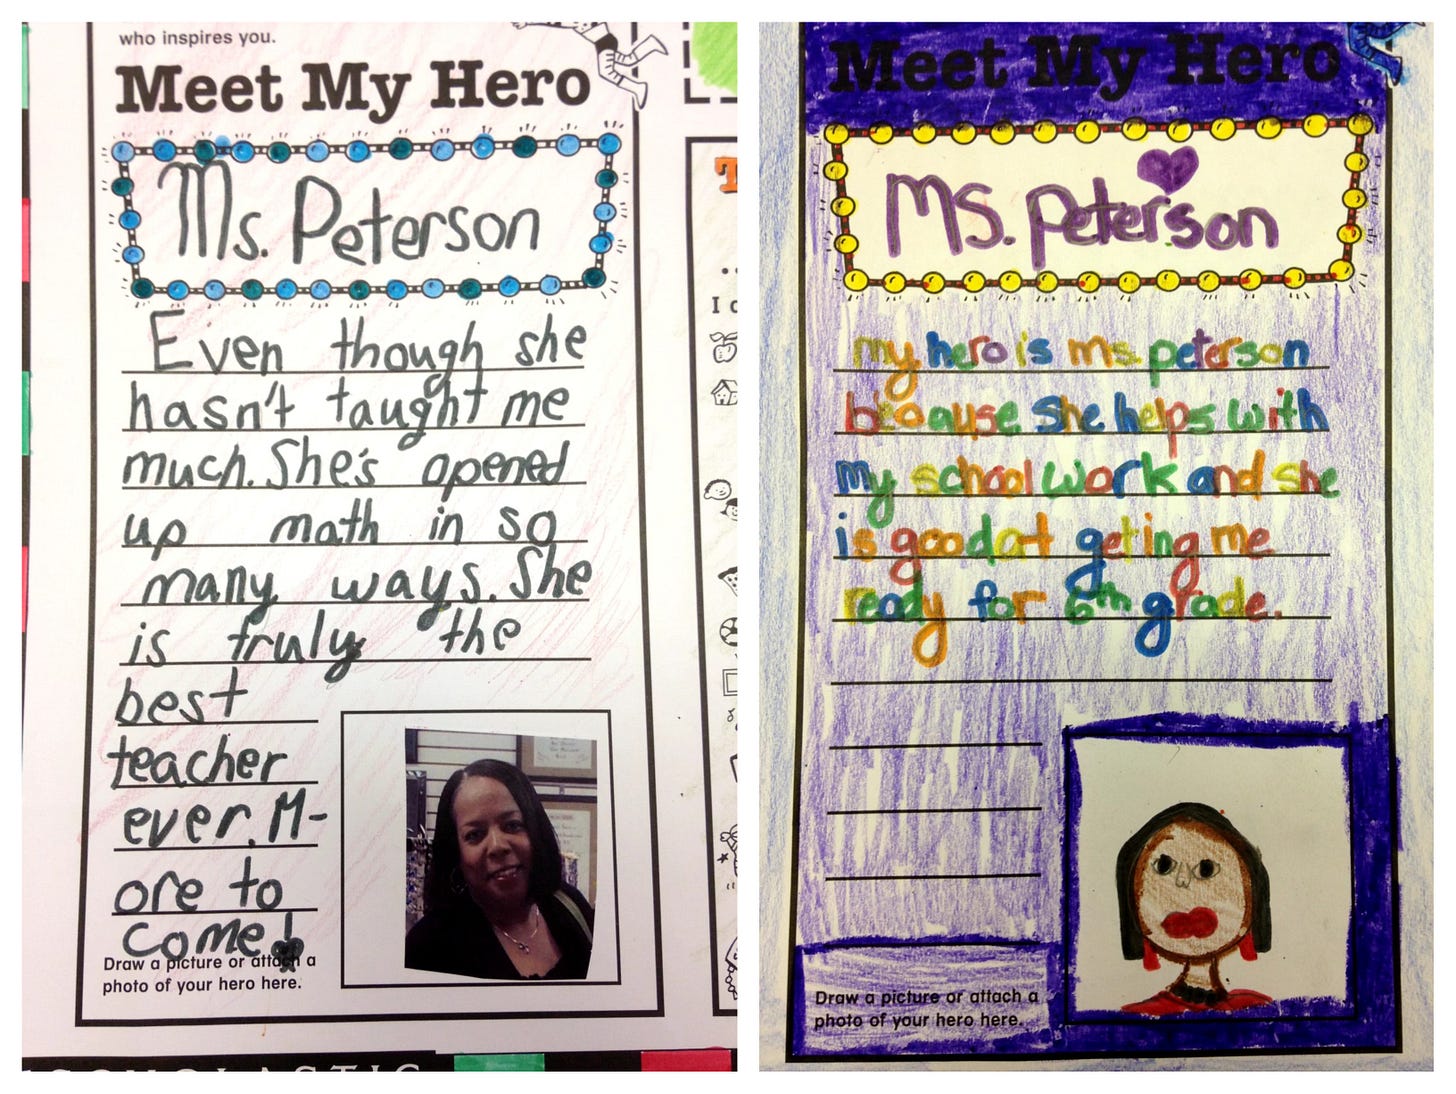 who inspires you.
Meet My Hero
Ms. Peterson
Even though she
hasn't taught me
much. She's opened
up math in so
many ways. She
is truly the
best
teacher
ever. M-
ore to
come!
Draw a picture or attach a
photo of your hero here.
I
SCHOLASTIC
Meet My Hero
Ms. Peterson
my hero is ms. peterson
because she helps with
my school work and she
is good at geting me
ready for 6th grade.
Draw a picture or attach a
photo of your hero here.